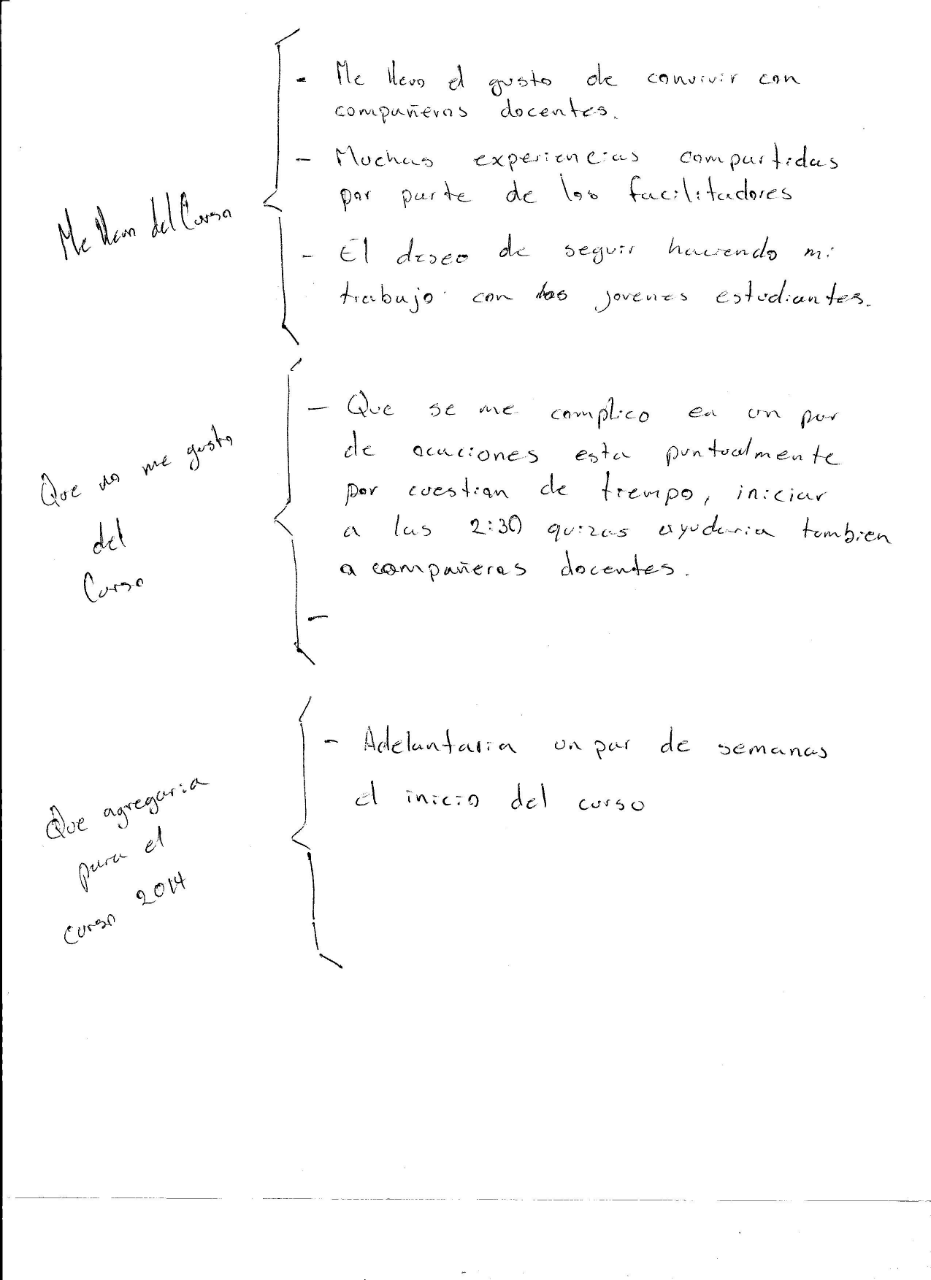 Me llevo del Curso
- Me llevo el gusto de convivir con
compañeros docentes.
- Muchas experiencias compartidas
por parte de los facilitadores
- El deseo de seguir haciendo mi
trabajo con los jovenes estudiantes.
Que no me gusto
del
Curso
- Que se me complico en un par
de ocaciones esta puntualmente
por cuestian de tiempo, iniciar
a las 2:30 quizas ayudaria tambien
a compañeros docentes.
-
Que agregaria
para el
curso 2014
- Adelantaria un par de semanas
el inicio del curso